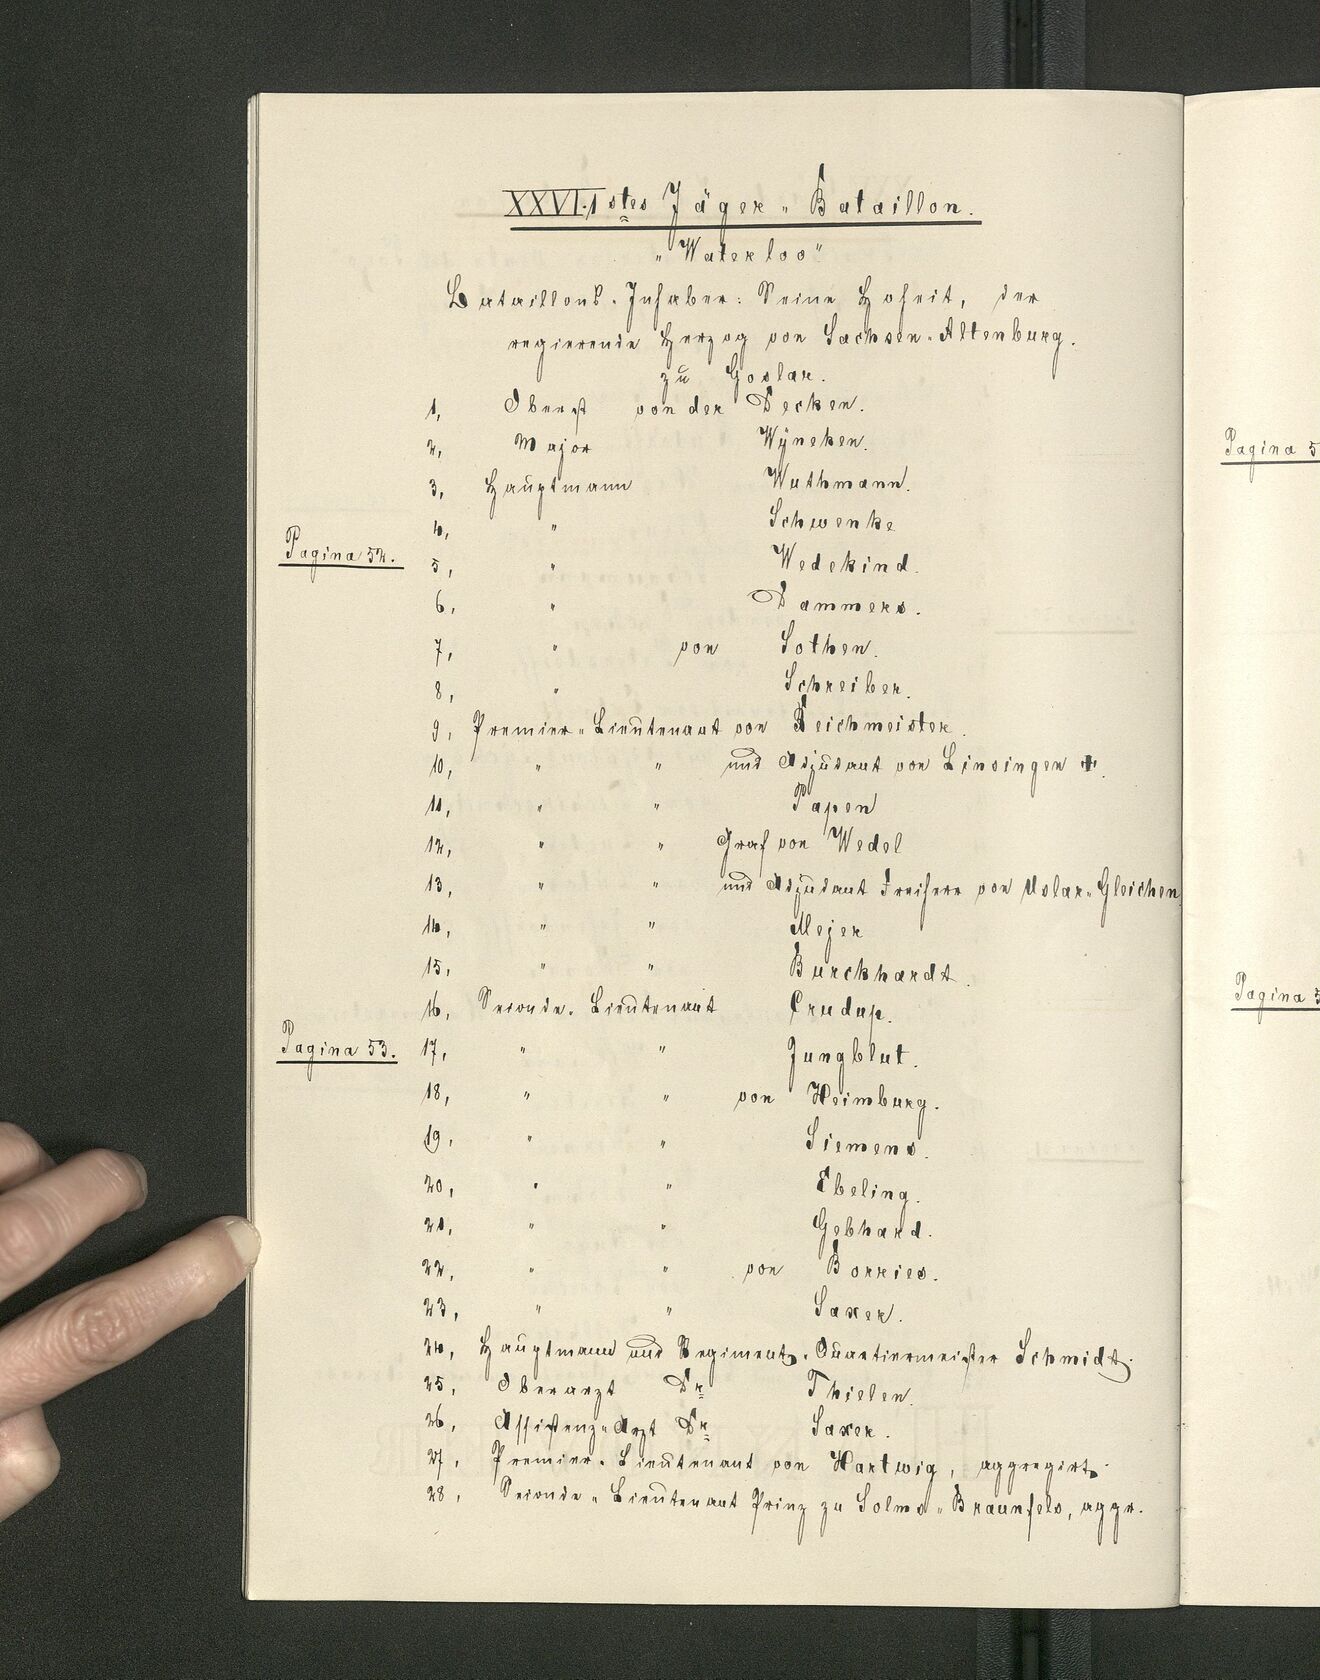 XXVI. 1stes Jäger-Bataillon.
"Waterloo"
Bataillons-Inhaber: Seine Hoheit, der
regierende Herzog von Sachsen-Altenburg.
zu Goslar.
1, Oberst von der Decken.
2, Major Wÿneken.
3, Hauptmann Wuthmann.
4, " Schwenke
Pagina 52.
5, " Wedekind.
6, " Dammers.
7, " von Sothen.
8, " Schreiber.
9, Premier-Lieutenant von Reichmeister.
10, " " und Adjudant von Linsingen +.
11, " " Papen
12, " " Graf von Wedel
13, " " und Adjudant Freiherr von Uslar-Gleichen
14, " " Mejer
15, " " Burckhardt.
16, Seconde-Lieutenant Crudup.
Pagina 53.
17, " " Jungblut.
18, " " von Heimburg.
19, " " Siemens.
20, " " Ebeling.
21, " " Gebhard.
22, " " von Borries.
23, " " Saxer.
24, Hauptmann und Regiments-Quartiermeister Schmidt.
25, Oberarzt Dr Thielen.
26, Assistenz-Arzt Dr Saxer.
27, Premier-Lieutenant von Hartwig, aggregirt.
28, Seconde-Lieutenant Prinz zu Solms-Braunfels, aggr.
Pagina 5
Pagina 5